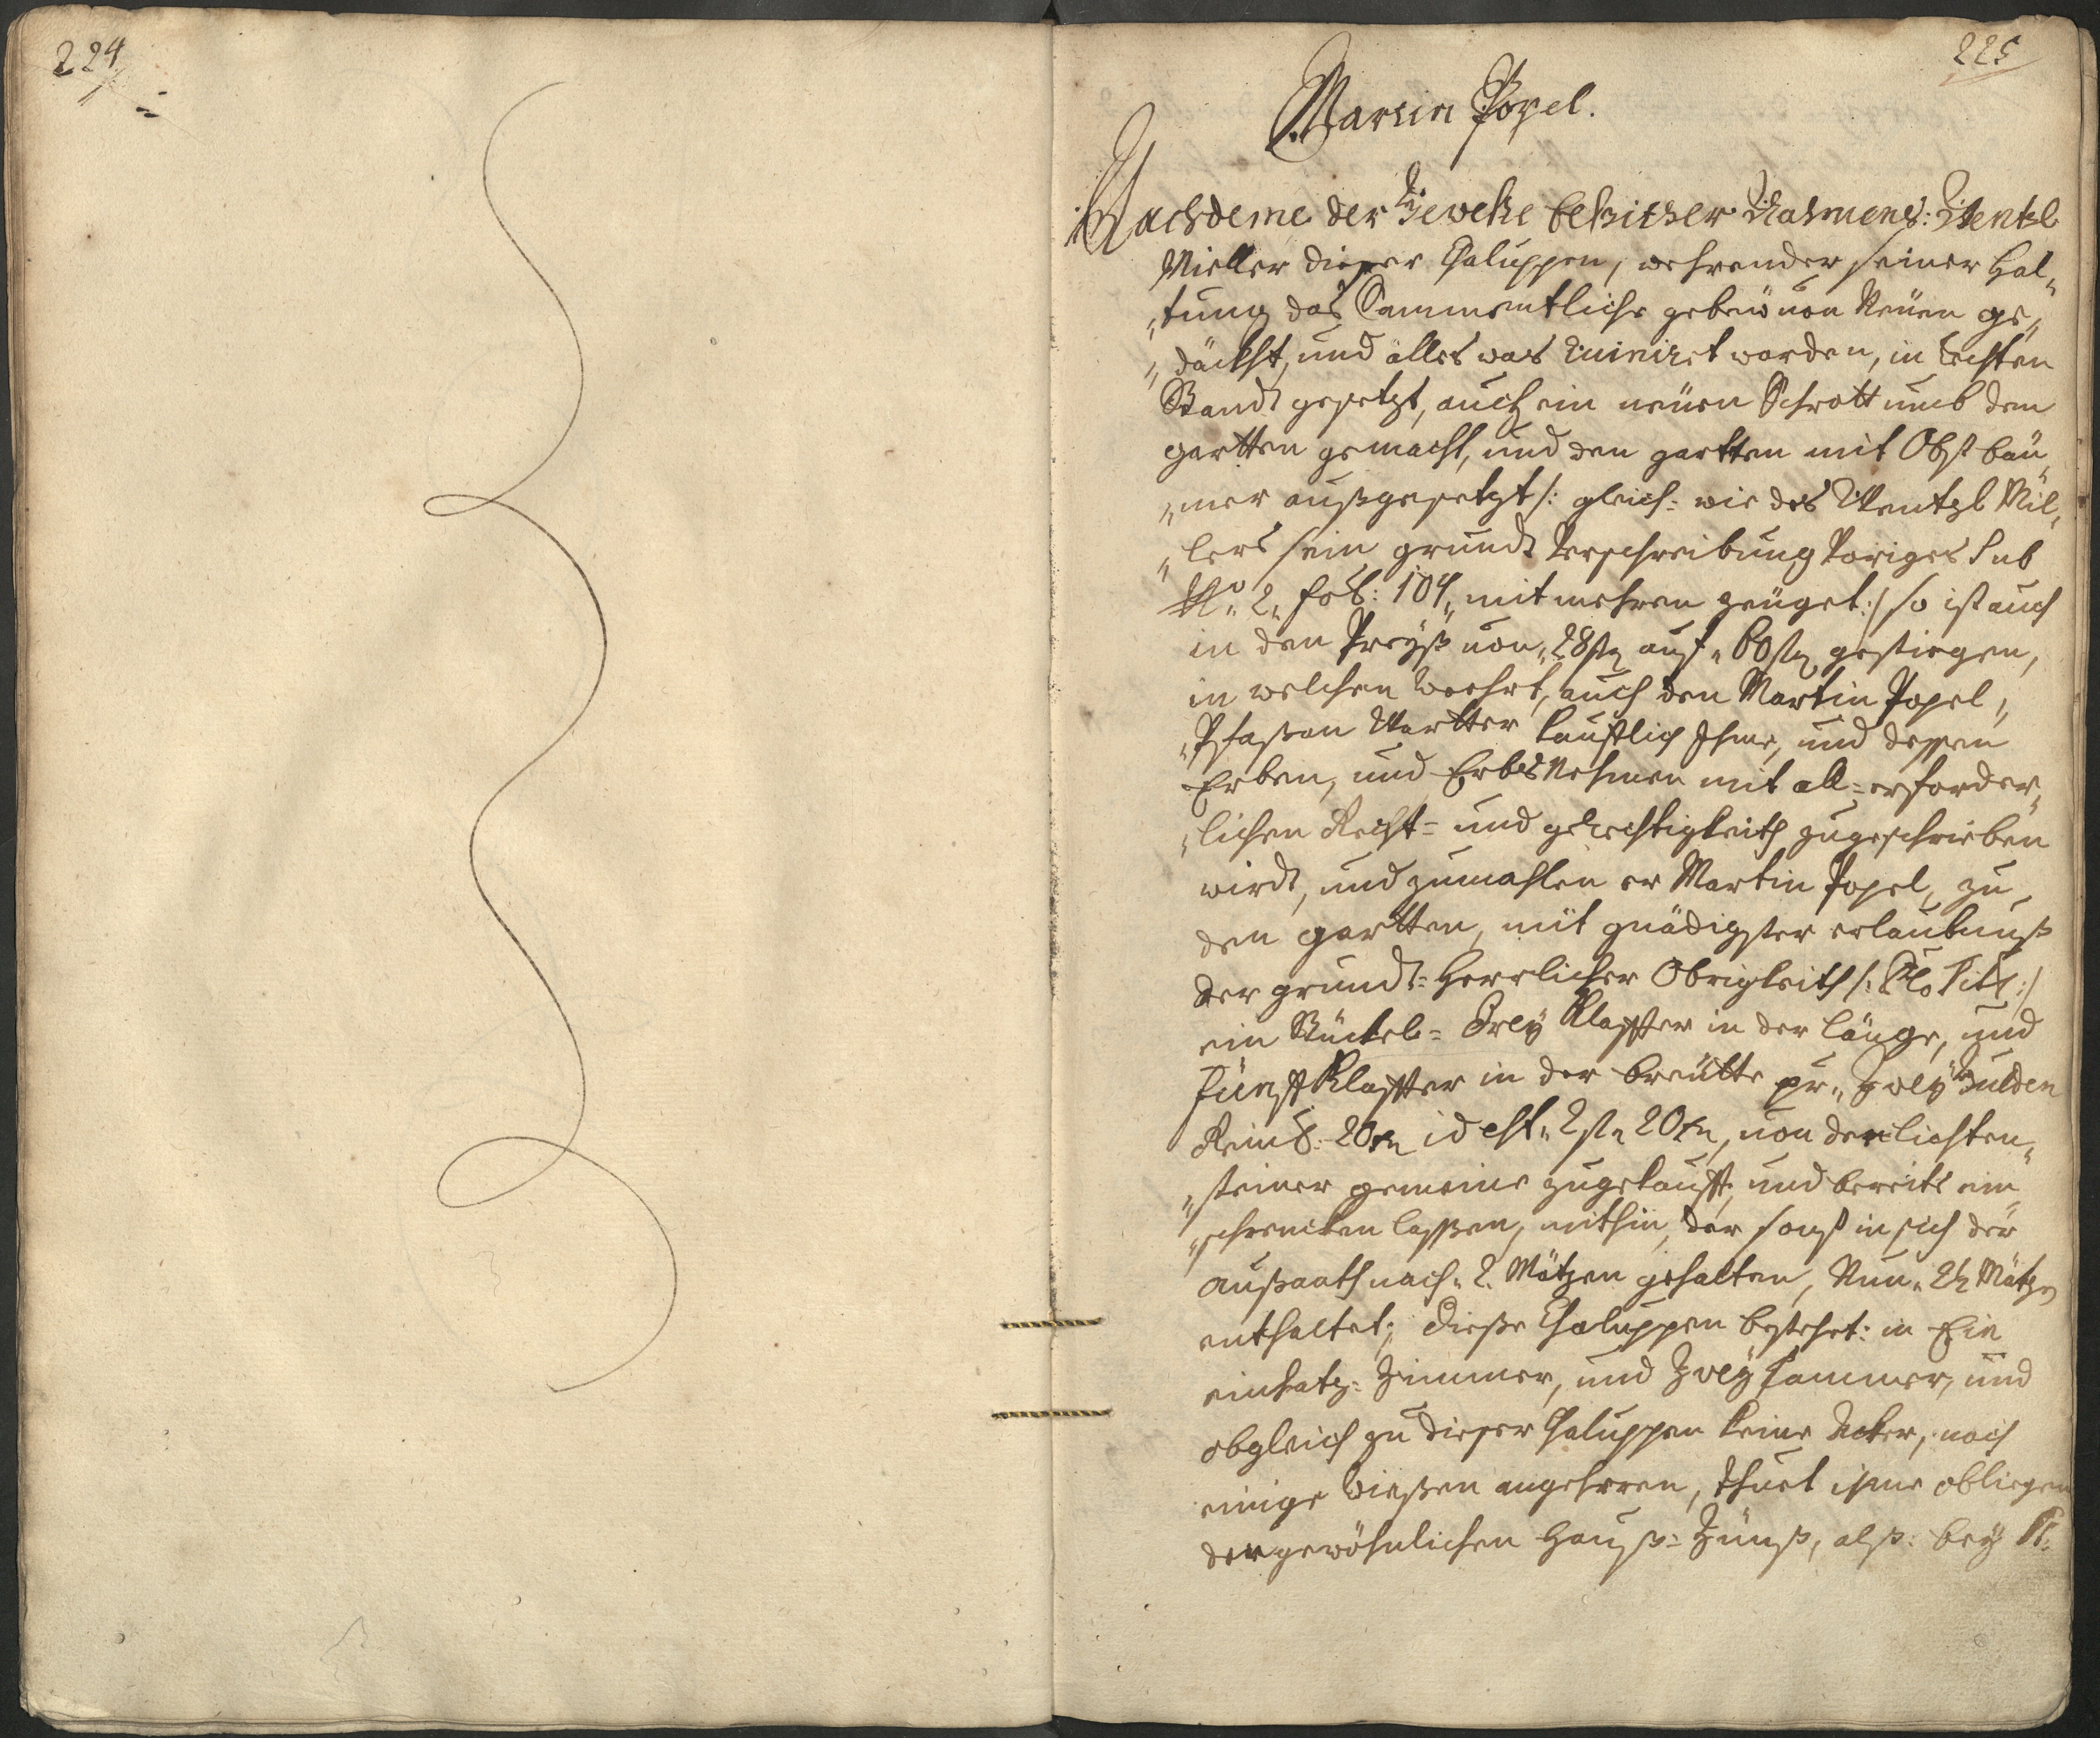 224
225
Martin Popel.
Nachdeme der Geweste besitzer Nahmens: Wentzl
Mieller dieser Chaluppen, wehrender seiner Hal„
„tung das Sammentliche gebeu von Neuen ge„
„däckht, und alles was Ruiniret worden, in rechten
Standt gesetzt, auch ein neuen Schrott umb den
gartten gemacht, und den gartten mit Obst bäu„
„mer außgesetzt /: gleich= wie des Wentzl Mil„
„lers sein grundt Verschreibung Voriges Sub
N:o 2„ fol: 104„ mit mehren zeuget :/ so ist auch
in den Preyß von „28 auf „60 gestiegen,
in welchen Wehrt, auch den Martin Popel„
„Phasan Wartter kaufflich Ihme, und dessen
Erben, und Erbs Nehmen mit all= erforder„
„lichen Recht= und gerechtigkeith zugeschrieben
wirdt, und zumahlen er Martin Popel, zu
den gartten, mit gnädigster erlaubnuß
der grundt= Herrlicher Obrigkeith /: Tit :/
ein Stückel= Drey Klaffter in der länge, und
fünff Klaffter in der breütte pr„ Zwey Gulden
Reinis: 20 id est „2 „20, von der lichten„
„steiner gemeine zugekaufft, und bereits ein
„schrencken lassen, mithin, der sonst in sich der
außaath nach „2. Mätzen gehalten, Nun „2½ Mätzen
enthaltet; Diese Chaluppen bestehet: in Ein
einhatz= Zimmer, und Zwey kammer, und
obgleich zu dieser Chaluppen keine Acker, noch
einige Wiesen angehören, thuet ihme obliegen
der gewöhnlichen Hauß= Zünß, alß: bey St: